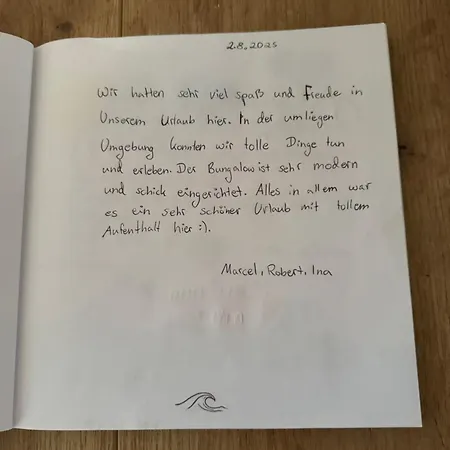 2.8.2025
Wir hatten sehr viel spaß und freude in
Unserem Urlaub hier. In der umliegen
Umgebung konnten wir tolle Dinge tun
und erleben. Der Bungalow ist sehr modern
und schick eingerichtet. Alles in allem war
es ein sehr schöner Urlaub mit tollem
Aufenthalt hier :).
Marcel, Robert, Ina